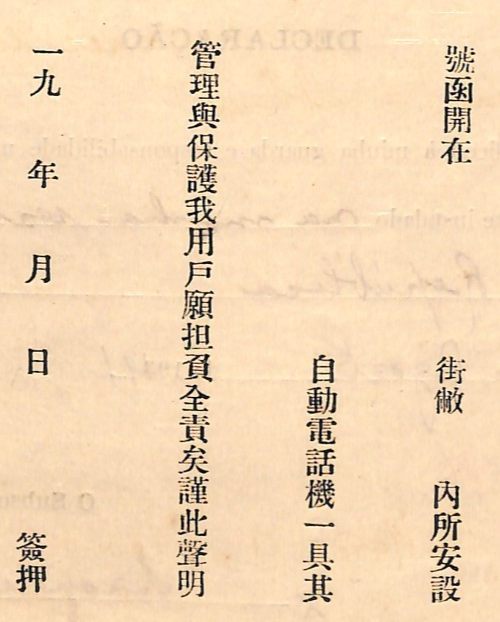 號函開在 街敝 內所安設
自動電話機一具其
管理與保護我用戶願担負全責矣謹此聲明
一九 年 月 日 簽押
DECLARAÇÃO